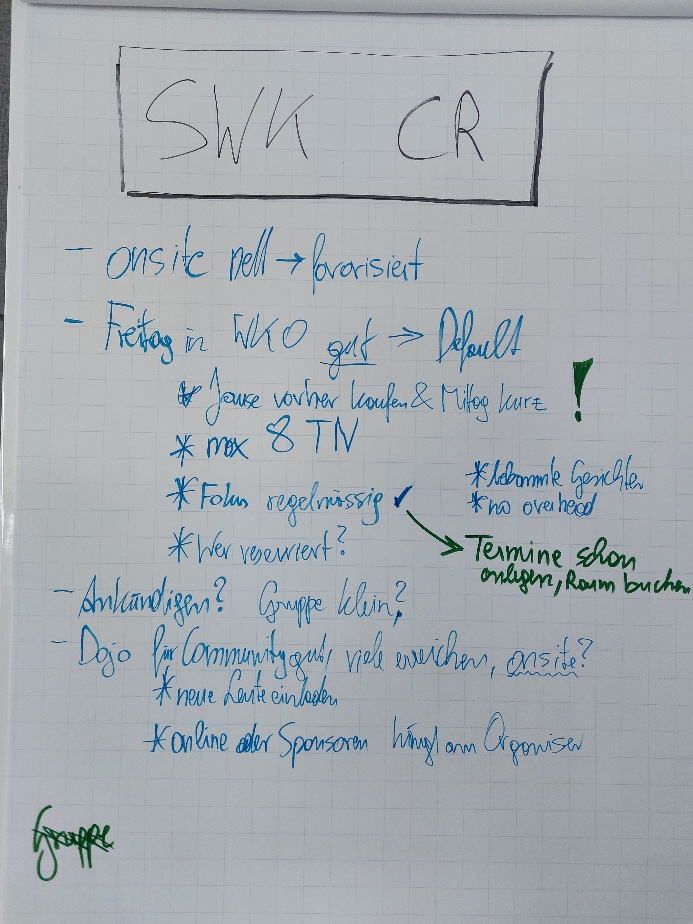 SWK CR
- onsite nell → favorisiert
- Freitag in WKO gut => Default
* Jause vorher kaufen & Mittag kurz !
* max 8 TN
* Fokus regelmässig ✓
* bekannte Gesichter
* no overhead
* Wer reserviert?
Termine schon
anlegen, Raum buchen
- Ankündigen? Gruppe klein?
- Dojo für Community gut, viele erreichen, onsite?
* neue Leute einladen
* online oder Sponsoren hängt am Organiser
Gruppe